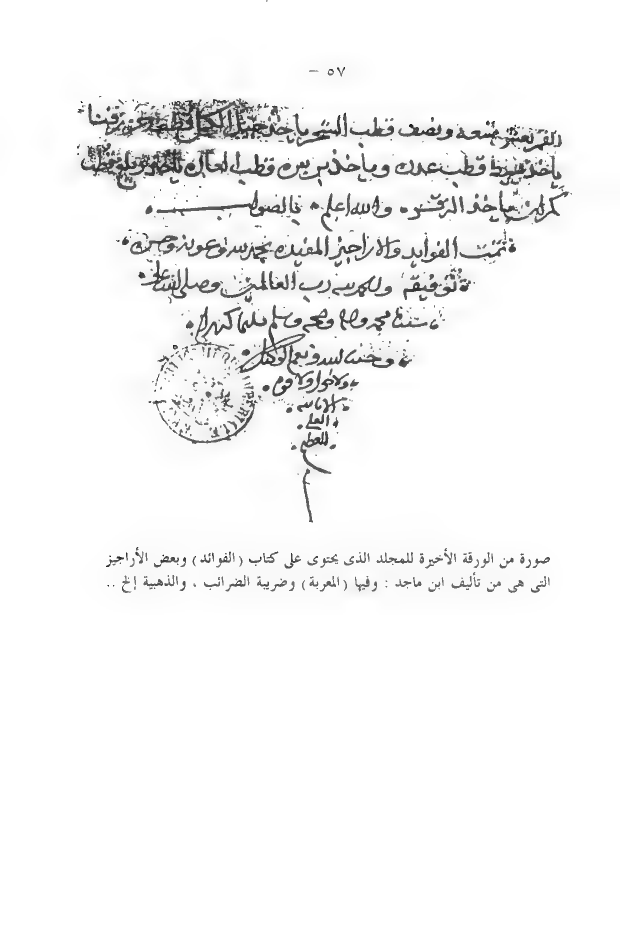 – ٥٧
ونصف قطب
ياخذ قطب عدن وياخذ قطب
ياخذ والله اعلم بالصواب
تمت الفوايد والاراجيز المفيده بحمد الله وعونه وحسن
توفيقه والحمد لله رب العالمين وصلى الله على
سيدنا محمد واله وصحبه وسلم تسليما كثيرا
وحسبنا الله ونعم الوكيل
ولا حول ولا قوه
الا بالله
العلي
العظيم
صورة من الورقة الأخيرة للمجلد الذى يحتوى على كتاب (الفوائد) وبعض الأراجيز
التى هى من تأليف ابن ماجد : وفيها (المعربة) وضريبة الضرائب ، والذهبية إلخ ..